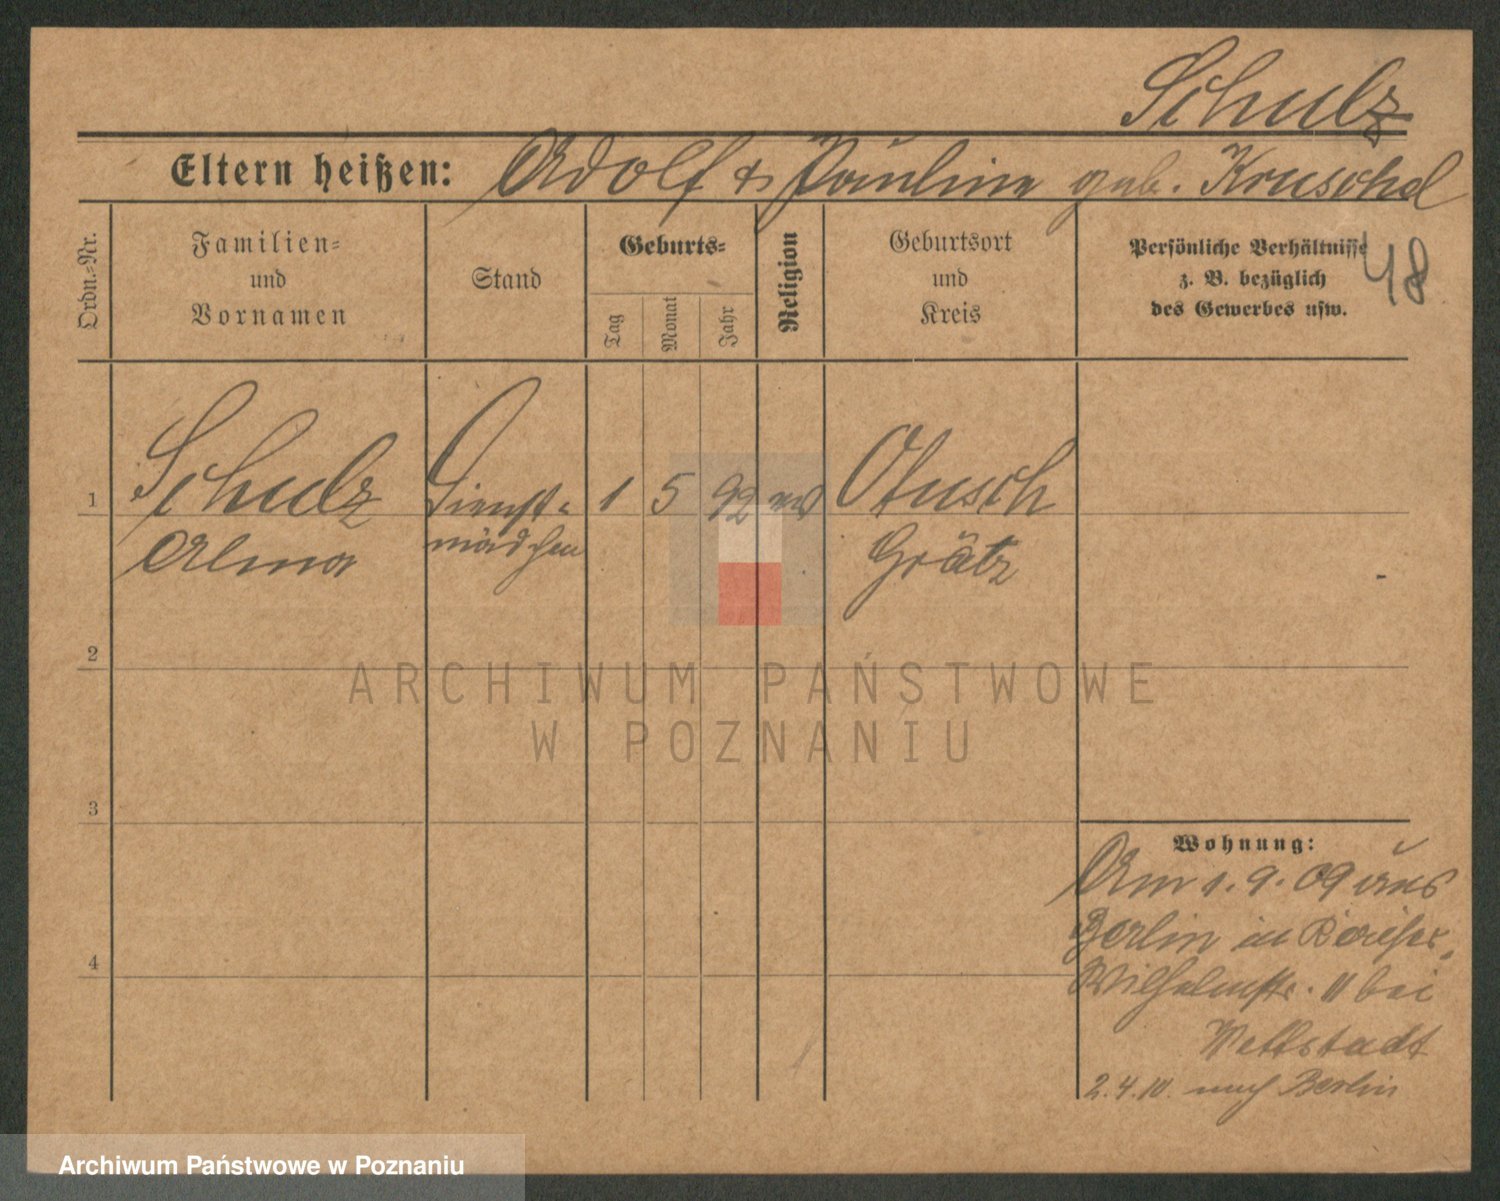 Schulz
Eltern heißen: Adolf & Pauline geb. Kruschel
Ordn.=Nr.
Familien=
und
Vornamen
Stand
Geburts=
Tag
Monat
Jahr
Religion
Geburtsort
und
Kreis
Persönliche Verhältnisse
z. B. bezüglich
des Gewerbes usw.
48
1
Schulz
Alma
Dienst=
mädchen
1 5 92
Otusch
Grätz
2
3
4
Wohnung:
Am 1. 9. 09 aus
Berlin in
Wilhelmstr. 11 bei
2. 4. 10. nach Berlin
ARCHIWUM PAŃSTWOWE
W POZNANIU
Archiwum Państwowe w Poznaniu